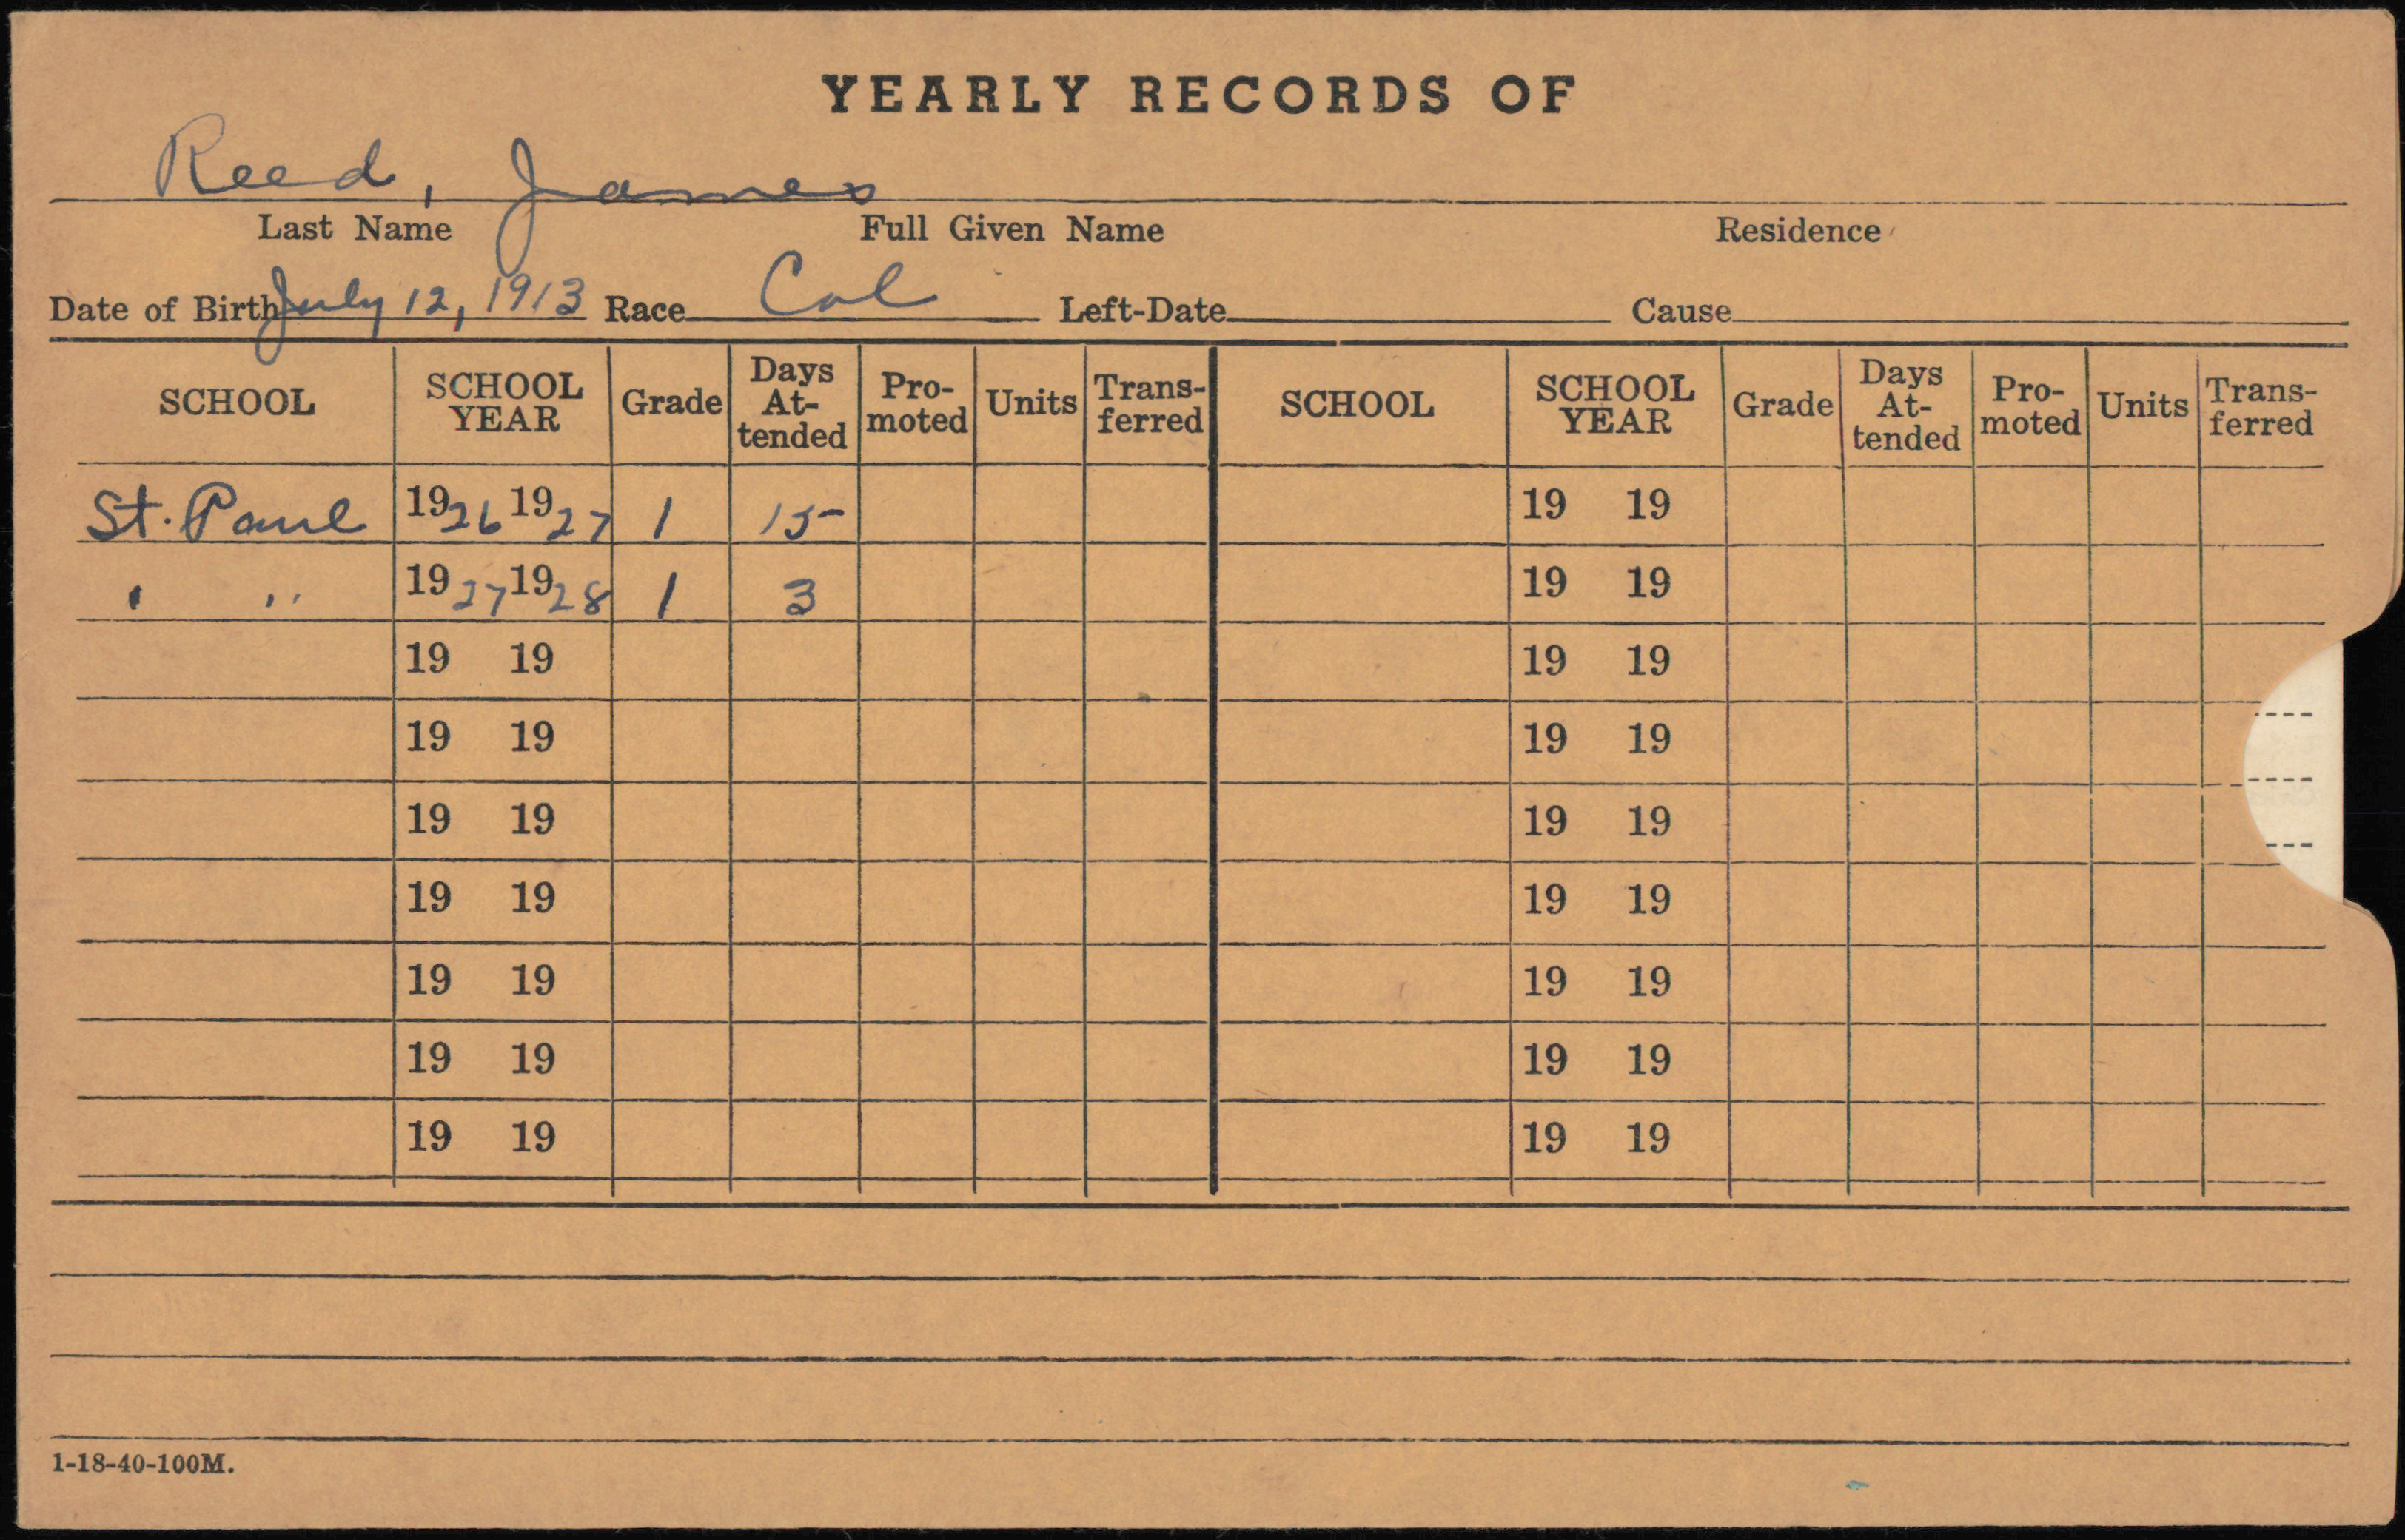 YEARLY RECORDS OF
Reed, James
Last Name Full Given Name Residence
Date of Birth July 12, 1913 Race Col Left-Date Cause
SCHOOL SCHOOL YEAR Grade Days At-tended Pro-moted Units Trans-ferred SCHOOL SCHOOL YEAR Grade Days At-tended Pro-moted Units Trans-ferred
St. Paul 1926 1927 1 15 19 19
" " 1927 1928 1 3 19 19
19 19 19 19
19 19 19 19
19 19 19 19
19 19 19 19
19 19 19 19
19 19 19 19
19 19 19 19
1-18-40-100M.